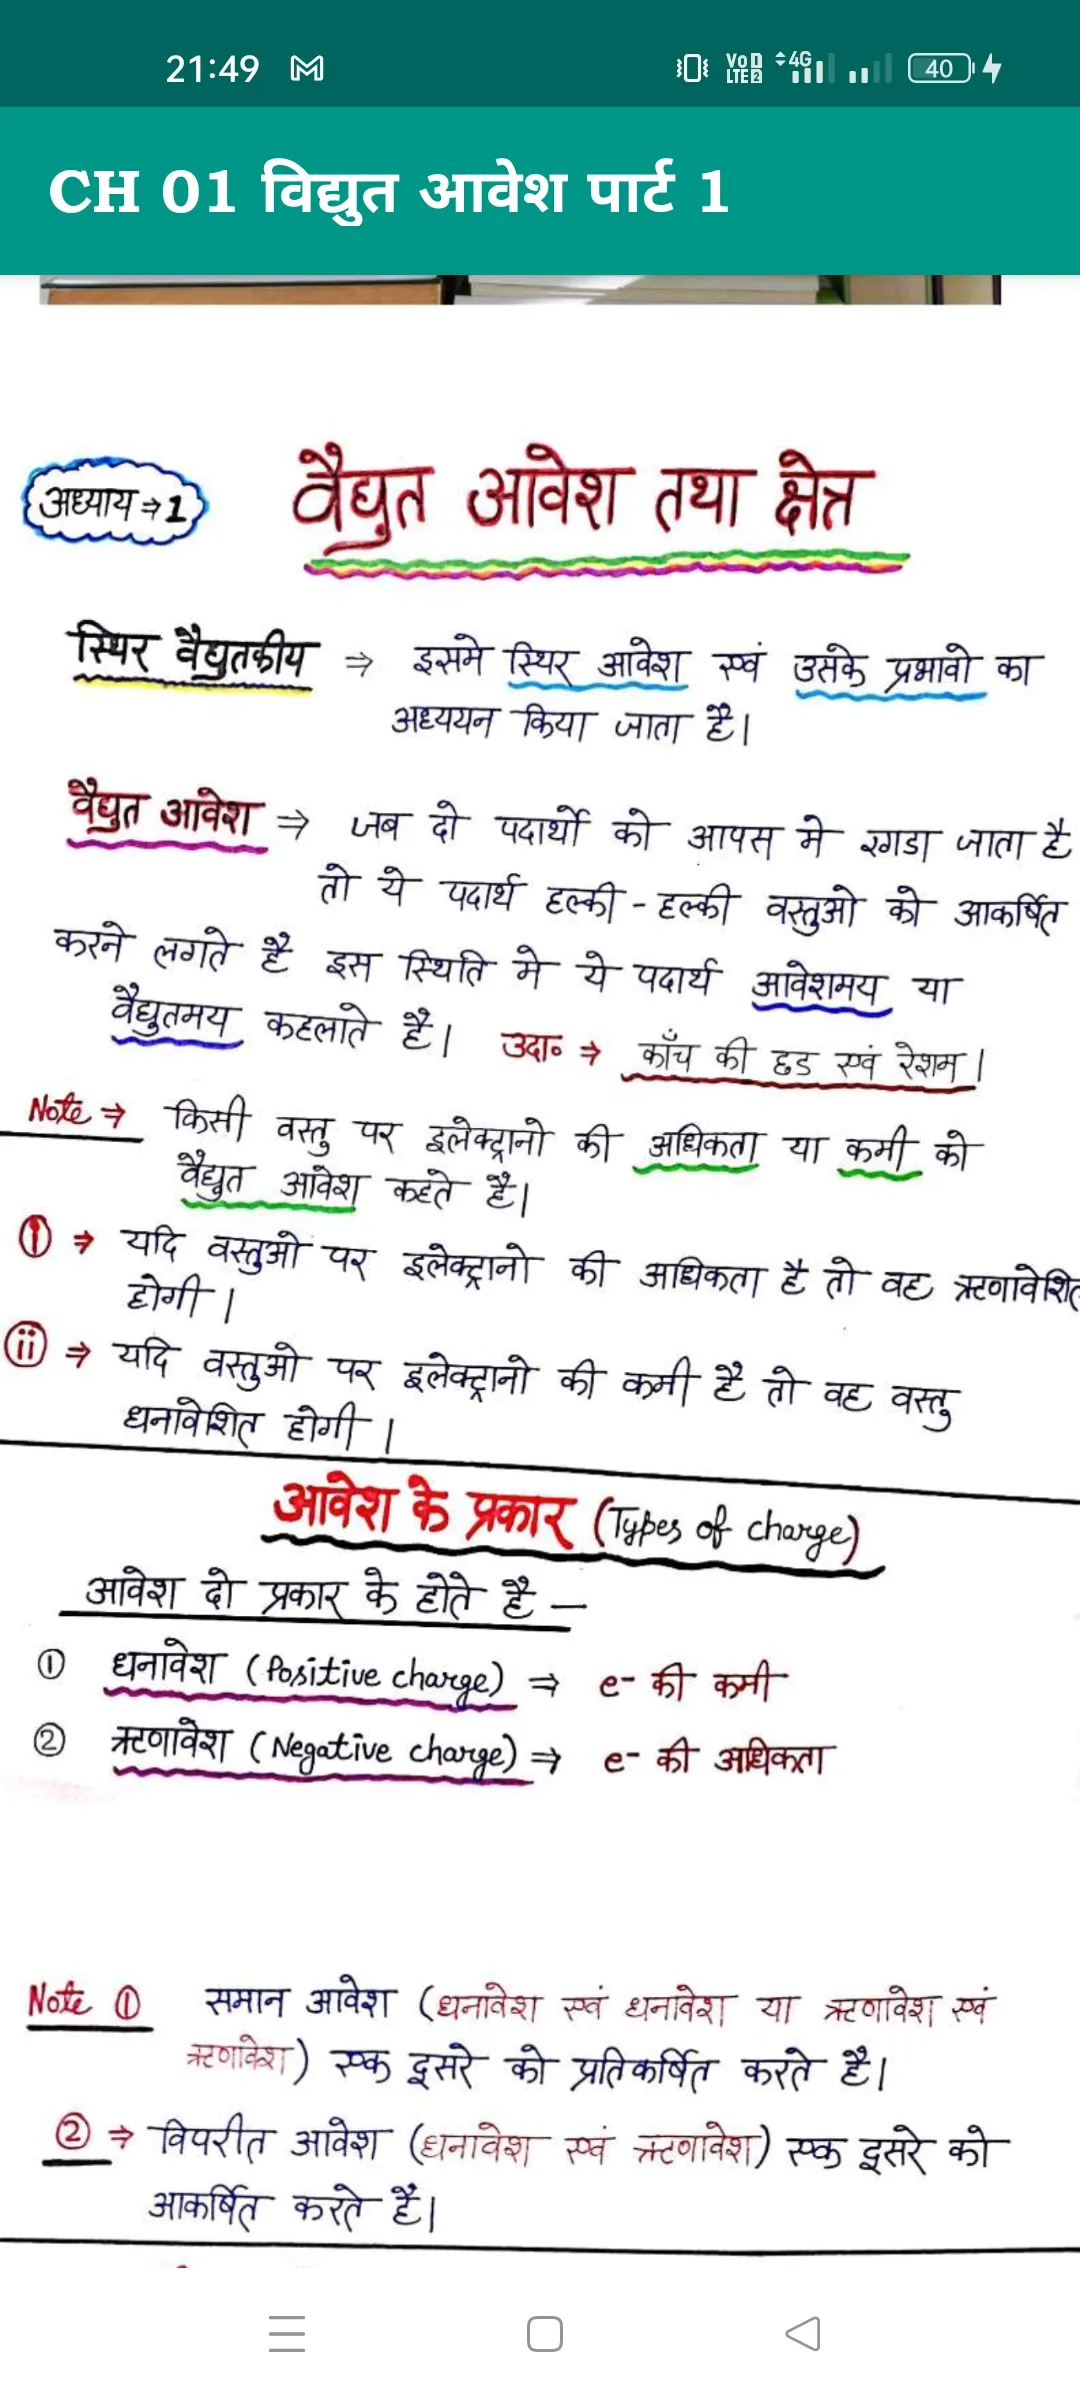 21:49
VoD LTE2 4G 40
CH 01 विद्युत आवेश पार्ट 1
अध्याय ⇒ 1
वैद्युत आवेश तथा क्षेत्र
स्थिर वैद्युतकीय ⇒ इसमे स्थिर आवेश एवं उसके प्रभावो का
अध्ययन किया जाता है।
वैद्युत आवेश ⇒ जब दो पदार्थो को आपस मे रगडा जाता है
तो ये पदार्थ हल्की - हल्की वस्तुओ को आकर्षित
करने लगते है इस स्थिति मे ये पदार्थ आवेशमय या
वैद्युतमय कहलाते है। उदा॰ ⇒ काँच की छड एवं रेशम।
Note ⇒ किसी वस्तु पर इलेक्ट्रानो की अधिकता या कमी को
वैद्युत आवेश कहते है।
(i) ⇒ यदि वस्तुओ पर इलेक्ट्रानो की अधिकता है तो वह ऋणावेशित
होगी।
(ii) ⇒ यदि वस्तुओ पर इलेक्ट्रानो की कमी है तो वह वस्तु
धनावेशित होगी।
आवेश के प्रकार (Types of charge)
आवेश दो प्रकार के होते है —
① धनावेश (Positive charge) ⇒ e- की कमी
② ऋणावेश (Negative charge) ⇒ e- की अधिकता
Note ① समान आवेश (धनावेश एवं धनावेश या ऋणावेश एवं
ऋणावेश) एक दूसरे को प्रतिकर्षित करते है।
② ⇒ विपरीत आवेश (धनावेश एवं ऋणावेश) एक दूसरे को
आकर्षित करते है।